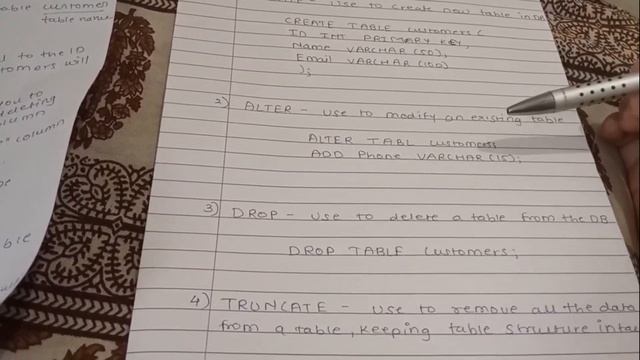 able customer
table name
d to the ID
tomers will
you to
deleting
olumn
" column
able
- Use to create new table in
CREATE TABLE customers (
ID INT PRIMARY KEY,
Name VARCHAR (50),
Email VARCHAR (100)
);
2) ALTER - Use to modify an existing table
ALTER TABL customers
ADD Phone VARCHAR (15);
3) DROP - Use to delete a table from the DB
DROP TABLE Customers;
4) TRUNCATE - Use to remove all the data
from a table, keeping table structure intac